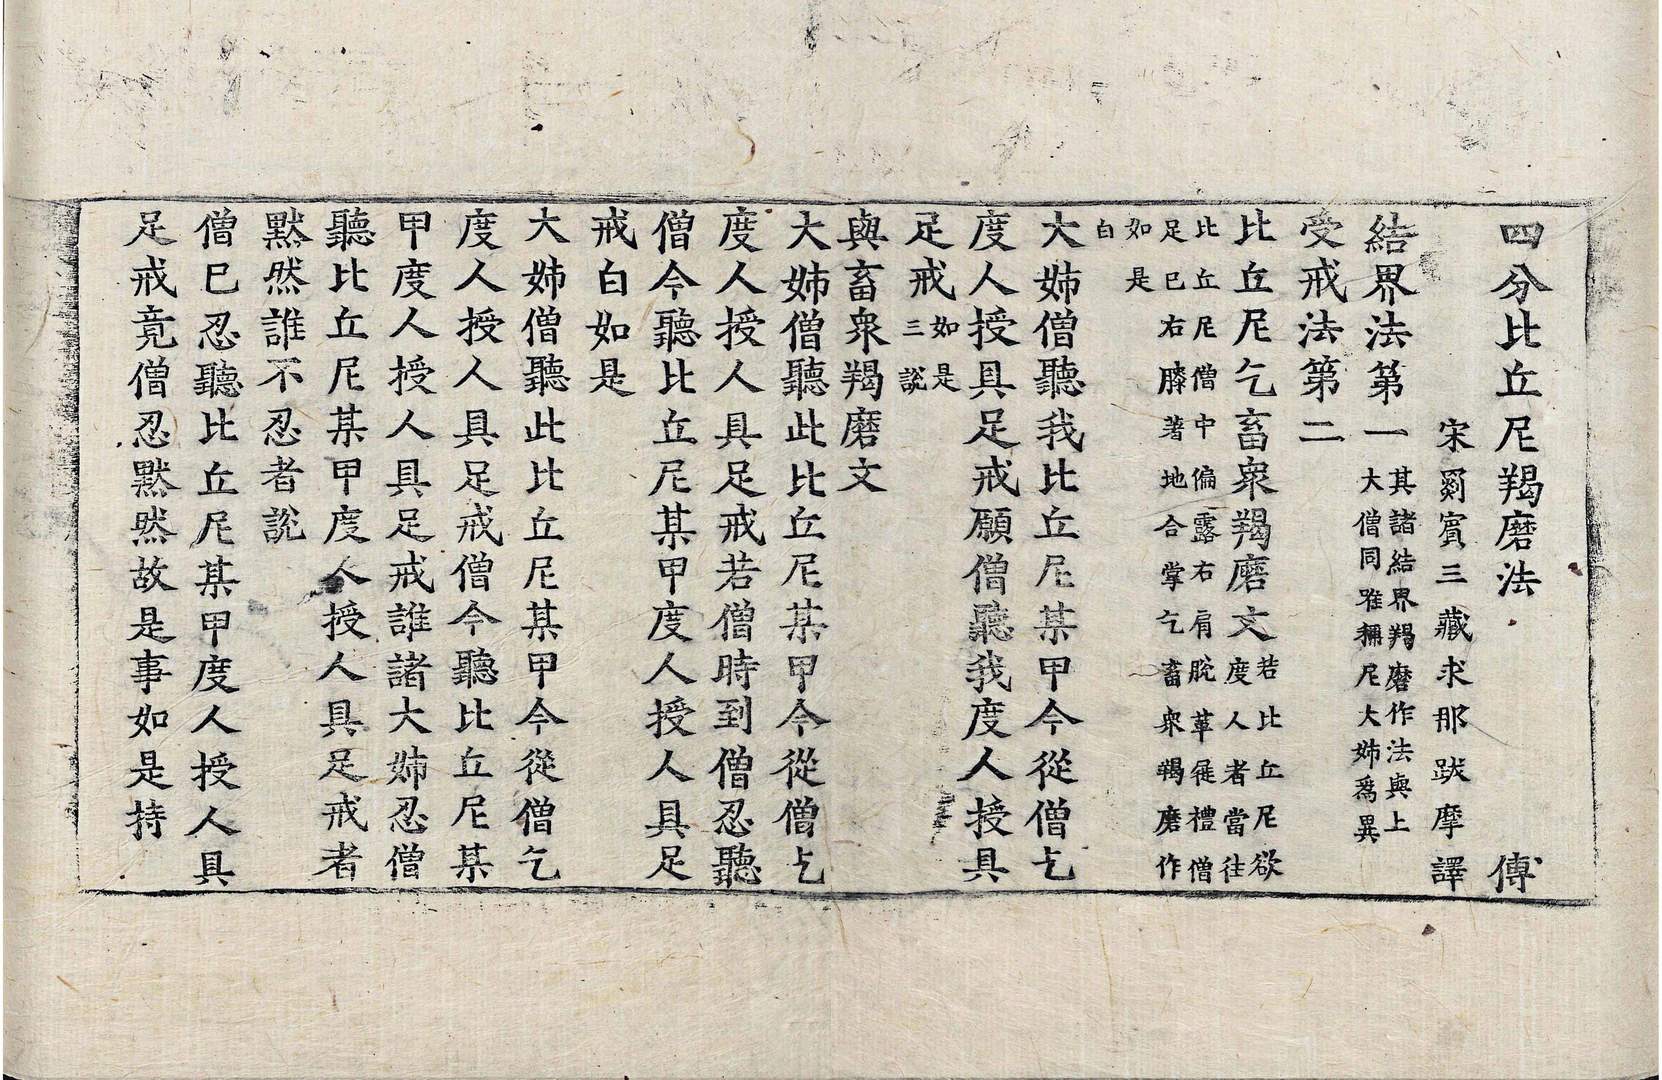 四分比丘尼羯磨法 傅
宋罽賓三藏求那跋摩譯
結界法第一
其諸結界羯磨作法與上
大僧同唯稱尼大姉爲異
受戒法第二
比丘尼乞畜衆羯磨文
若比丘尼欲
度人者當往
比丘尼僧中偏露右肩脫革屣禮僧
足已右膝著地合掌乞畜衆羯磨作
如是
白
大姉僧聽我比丘尼某甲今從僧乞
度人授具足戒願僧聽我度人授具
足戒
如是
三說
與畜衆羯磨文
大姉僧聽此比丘尼某甲今從僧乞
度人授人具足戒若僧時到僧忍聽
僧今聽比丘尼某甲度人授人具足
戒白如是
大姉僧聽此比丘尼某甲今從僧乞
度人授人具足戒僧今聽比丘尼某
甲度人授人具足戒誰諸大姉忍僧
聽比丘尼某甲度人授人具足戒者
默然誰不忍者說
僧已忍聽比丘尼某甲度人授人具
足戒竟僧忍默然故是事如是持